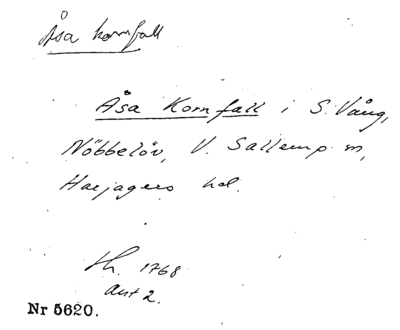 Åsa kornfall
Åsa Kornfall i S. Vång,
Nöbbelöv, V. Sallerup sn,
Harjagers hd.
Sk. 1768
Akt 2.
Nr 5620.